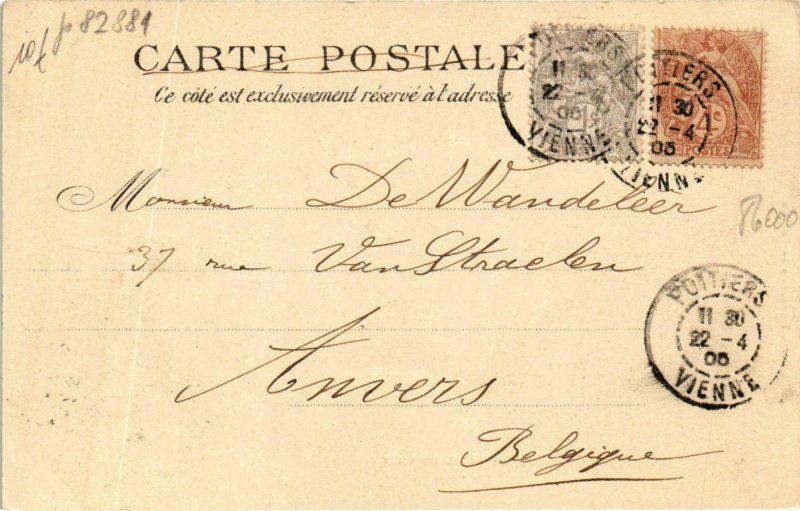 10f p 82881
CARTE POSTALE
Ce côté est exclusivement réservé à l'adresse
POITIERS
11 30
22 - 4
VIENNE
POITIERS
11 30
22 - 4
VIENNE
4c
POSTES
Monsieur De Wandeleer
86000
37 rue Van Straelen
POITIERS
11 30
22 - 4
VIENNE
Anvers
Belgique